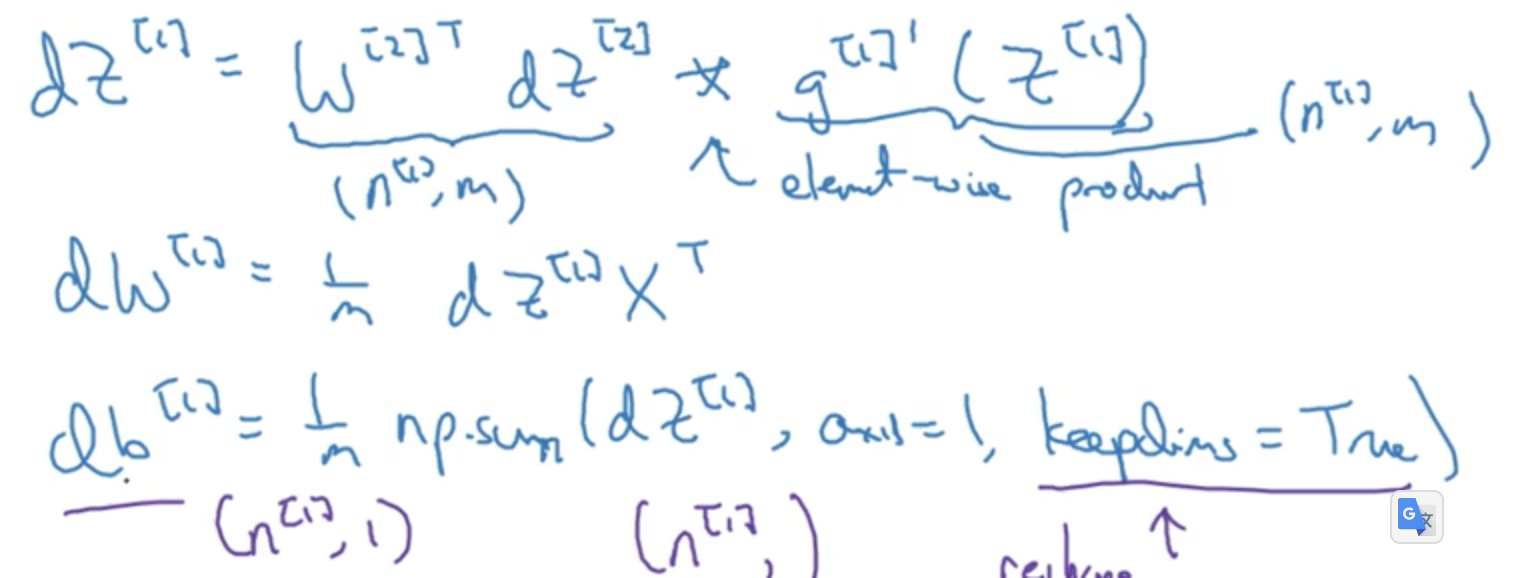 dZ^[1] = W^[2]T dZ^[2] * g^[1]' (Z^[1])
(n^[1], m) element-wise product (n^[1], m)
dW^[1] = 1/m dZ^[1] X^T
db^[1] = 1/m np.sum(dZ^[1], axis=1, keepdims=True)
(n^[1], 1) (n^[1],) ↑